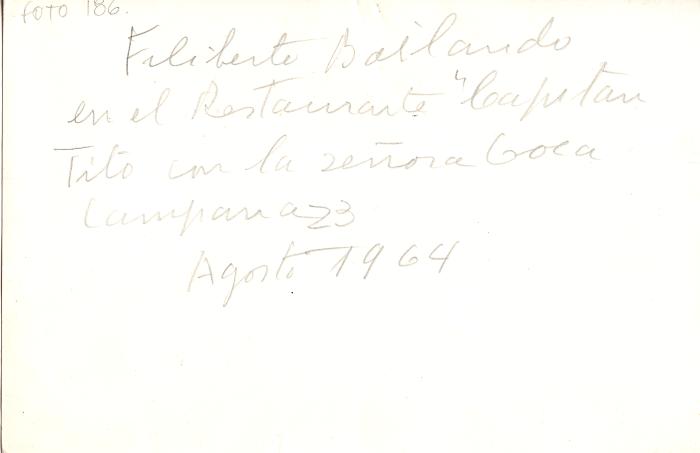 foto 186.
Filiberto Bailando
en el Restaurante "Capitan
Tito con la señora Goca
Campana 23
Agosto 1964